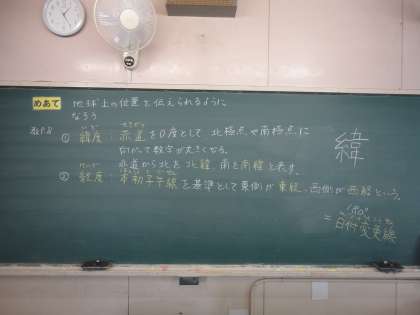 めあて 地球上の位置を伝えられるように
なろう
教P.8
① 緯度：赤道を0度として 北極点や南極点に
向かって数字が大きくなる。
赤道から北を北緯、南を南緯と表す。
② 経度：本初子午線を基準として東側が東経、西側が西経という。
緯
180°
=日付変更線